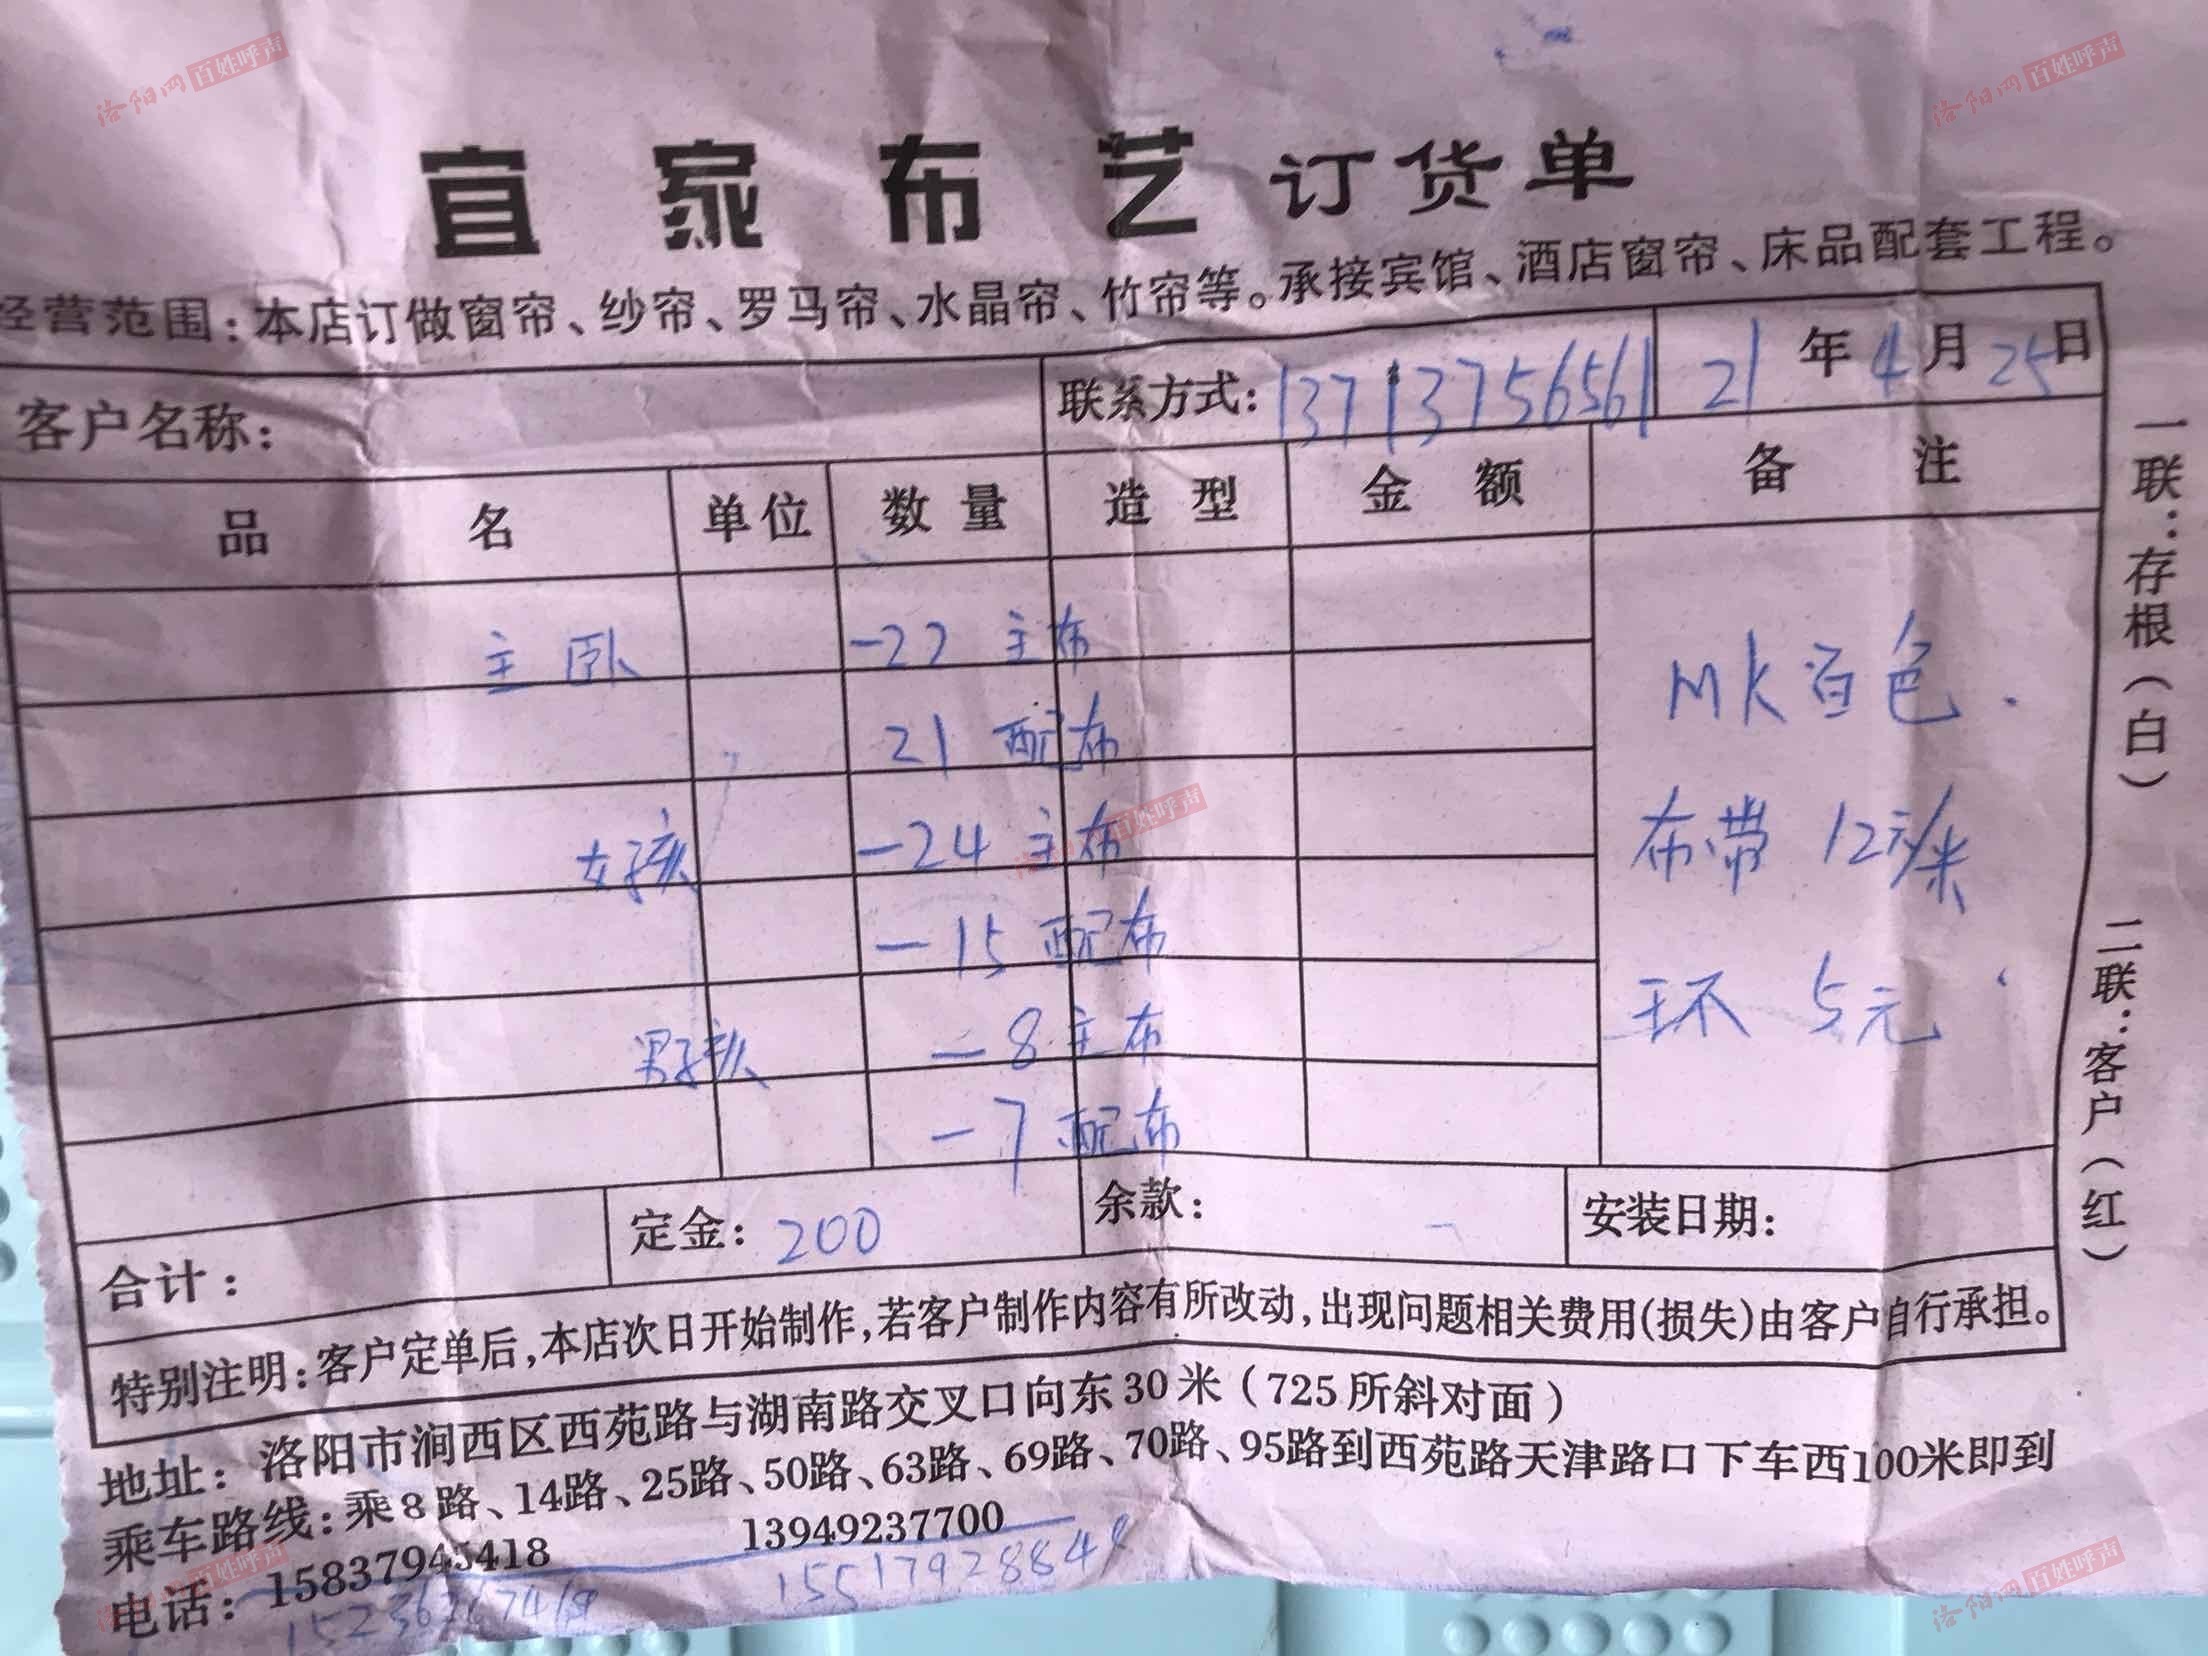 洛阳网 百姓呼声
洛阳网 百姓呼声
宜家布艺订货单
经营范围：本店订做窗帘、纱帘、罗马帘、水晶帘、竹帘等。承接宾馆、酒店窗帘、床品配套工程。
客户名称： 联系方式：13713756561 21年4月25日
品名 单位 数量 造型 金额 备注
主卧 -22 主布
21 配布
女孩 -24 主布
-15 配布
男孩 -8 主布
-7 配布
MK百色.
布带 12元/米
王不 5元
合计： 定金：200 余款： 安装日期：
特别注明：客户定单后，本店次日开始制作，若客户制作内容有所改动，出现问题相关费用(损失)由客户自行承担。
一联：存根（白） 二联：客户（红）
地址：洛阳市涧西区西苑路与湖南路交叉口向东30米（725所斜对面）
乘车路线：乘8路、14路、25路、50路、63路、69路、70路、95路到西苑路天津路口下车西100米即到
电话：15837945418 13949237700
洛阳网 百姓呼声
洛阳网 百姓呼声